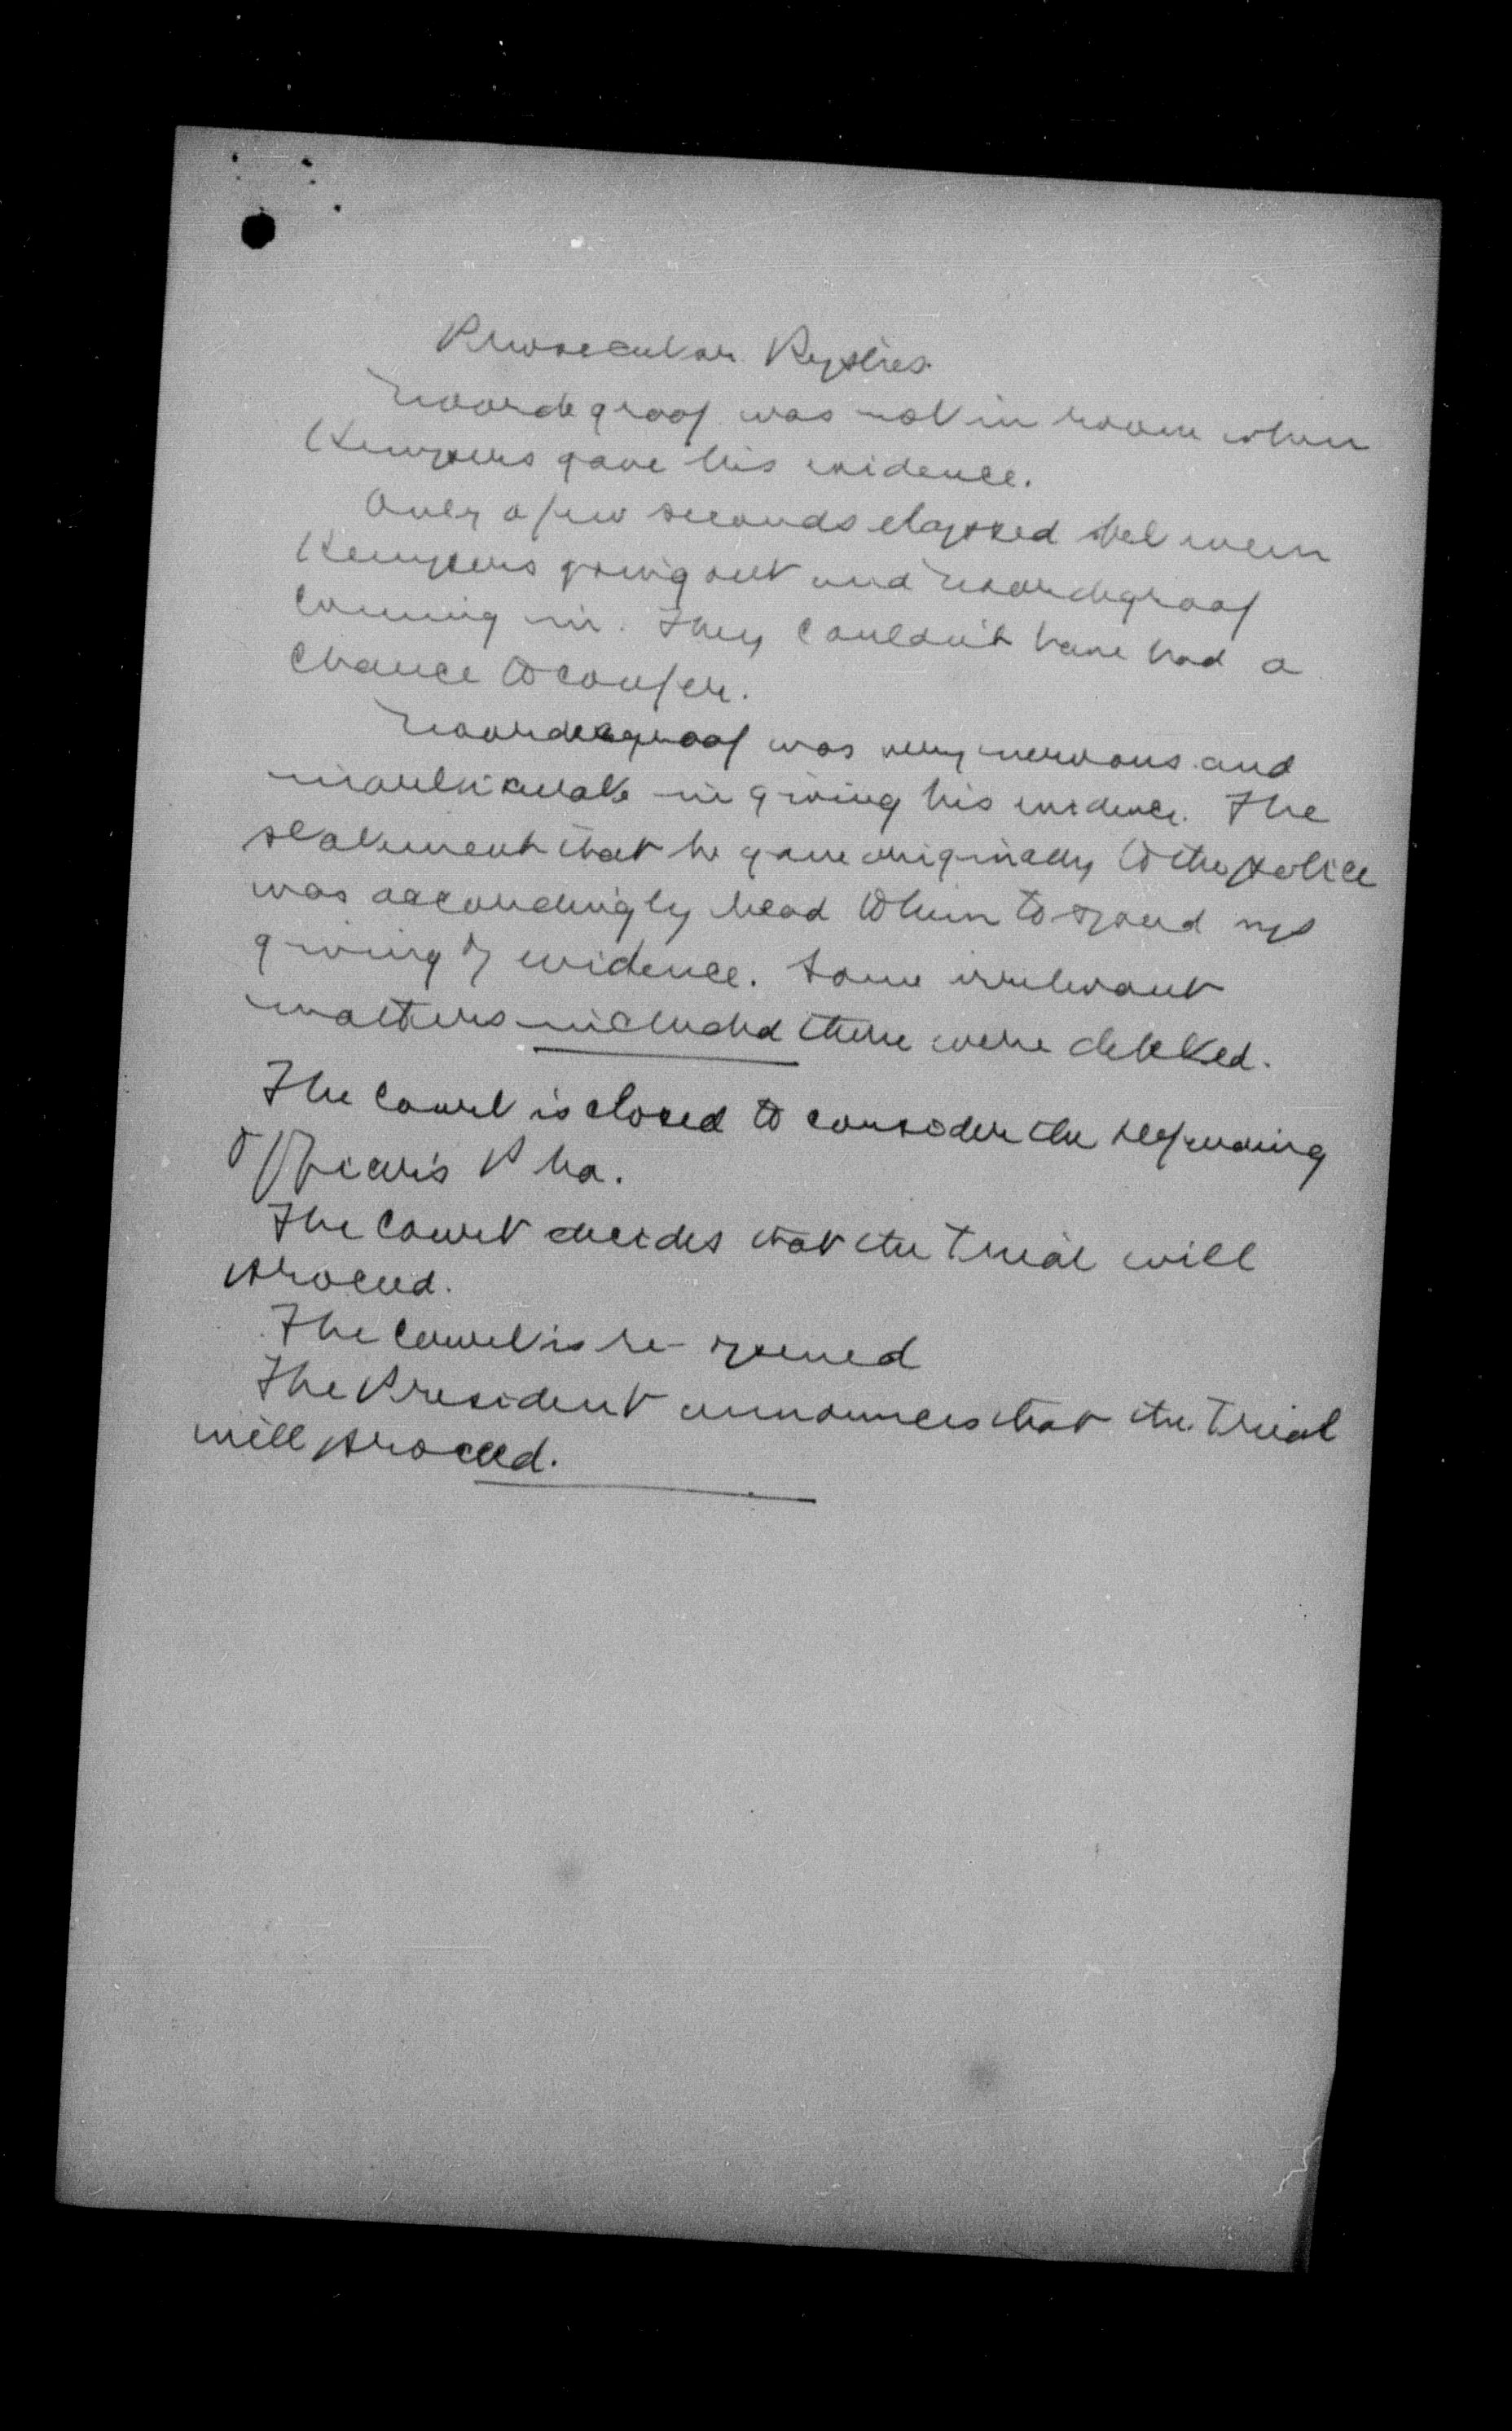 Prosecutor Replies.
Noordegraaf was not in room when
Kempers gave his evidence.
Only a few seconds elapsed between
Kempers going out and Noordegraaf
coming in. They couldn't have had a
chance to confer.
Noordegraaf was very nervous and
inarticulate in giving his evidence. The
statement that he gave originally to the police
was accordingly read to him to speed up
giving of evidence. Some irrelevant
matters included there were deleted.
The Court is closed to consider the defending
officer's plea.
The Court decides that the trial will
proceed.
The Court is re-opened
The President announces that the trial
will proceed.